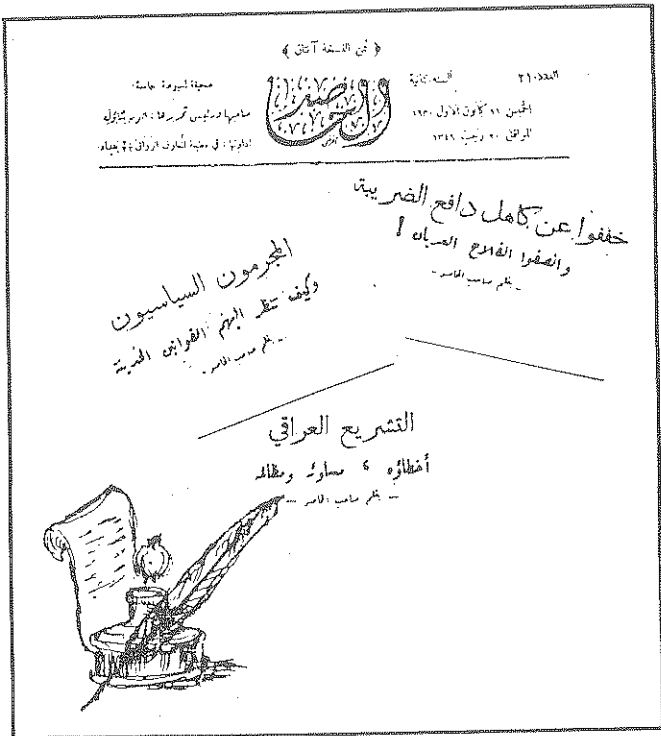 ﴿ ثمن النسخة آنتان ﴾
العدد ٢١٠ السنة الثانية
الخميس ١١ كانون الاول ١٩٣٠
الموافق ٢٠ رجب ١٣٤٩
صحيفة يومية جامعة
صاحبها ورئيس تحريرها:
ادارتها: في مطبعة المعارف ببغداد
خففوا عن كاهل دافع الضريبة
وانصفوا الفلاح العريان!
- بقلم صاحب الحاصد -
المجرمون السياسيون
وكيف تنظر اليهم القوانين الحديثة
- بقلم صاحب الحاصد -
التشريع العراقي
أخطاؤه ، مساوئه ومظالمه
- بقلم صاحب الحاصد -